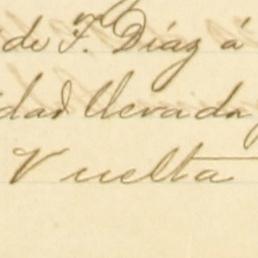 de F. Díaz á
idad llevada
Vuelta